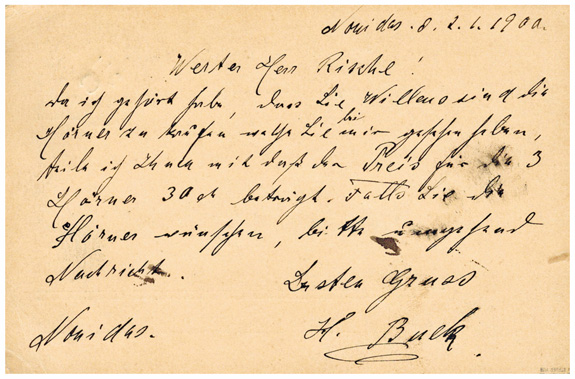 Nonidas. 8. 2. 1900.
Werter Herr Rische!
Da ich gehört habe, dass Sie Willens sind die
Hörner zu kaufen welche Sie bei mir gesehen haben,
teile ich Ihnen mit daß der Preis für die 3
Hörner 30 M beträgt. Falls Sie die
Hörner wünschen, bitte umgehend
Nachricht.
Besten Gruss
Nonidas. H. Buck.